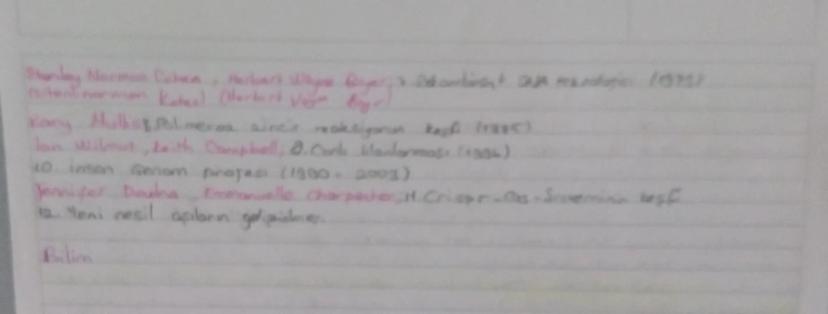 Stanley Norman Cohen, Herbert Wayne Boyer, 7. Rekombinant DNA teknolojisi (1973)
Norman Kohen) (Herbırt Veyn Boyır)
Kary Mullis 8. Polimeraz zincir reaksiyonun keşfi (1985)
Ian Wilmut, Keith Campbell, 9. Canlı klonlanması (1996)
10. insan Genom projesi (1990 - 2003)
Jennifer Doudna, Emmanuelle Charpentier, 11. Crispr-Cas- keşfi
12. Yeni nesil aşıların
Bilim